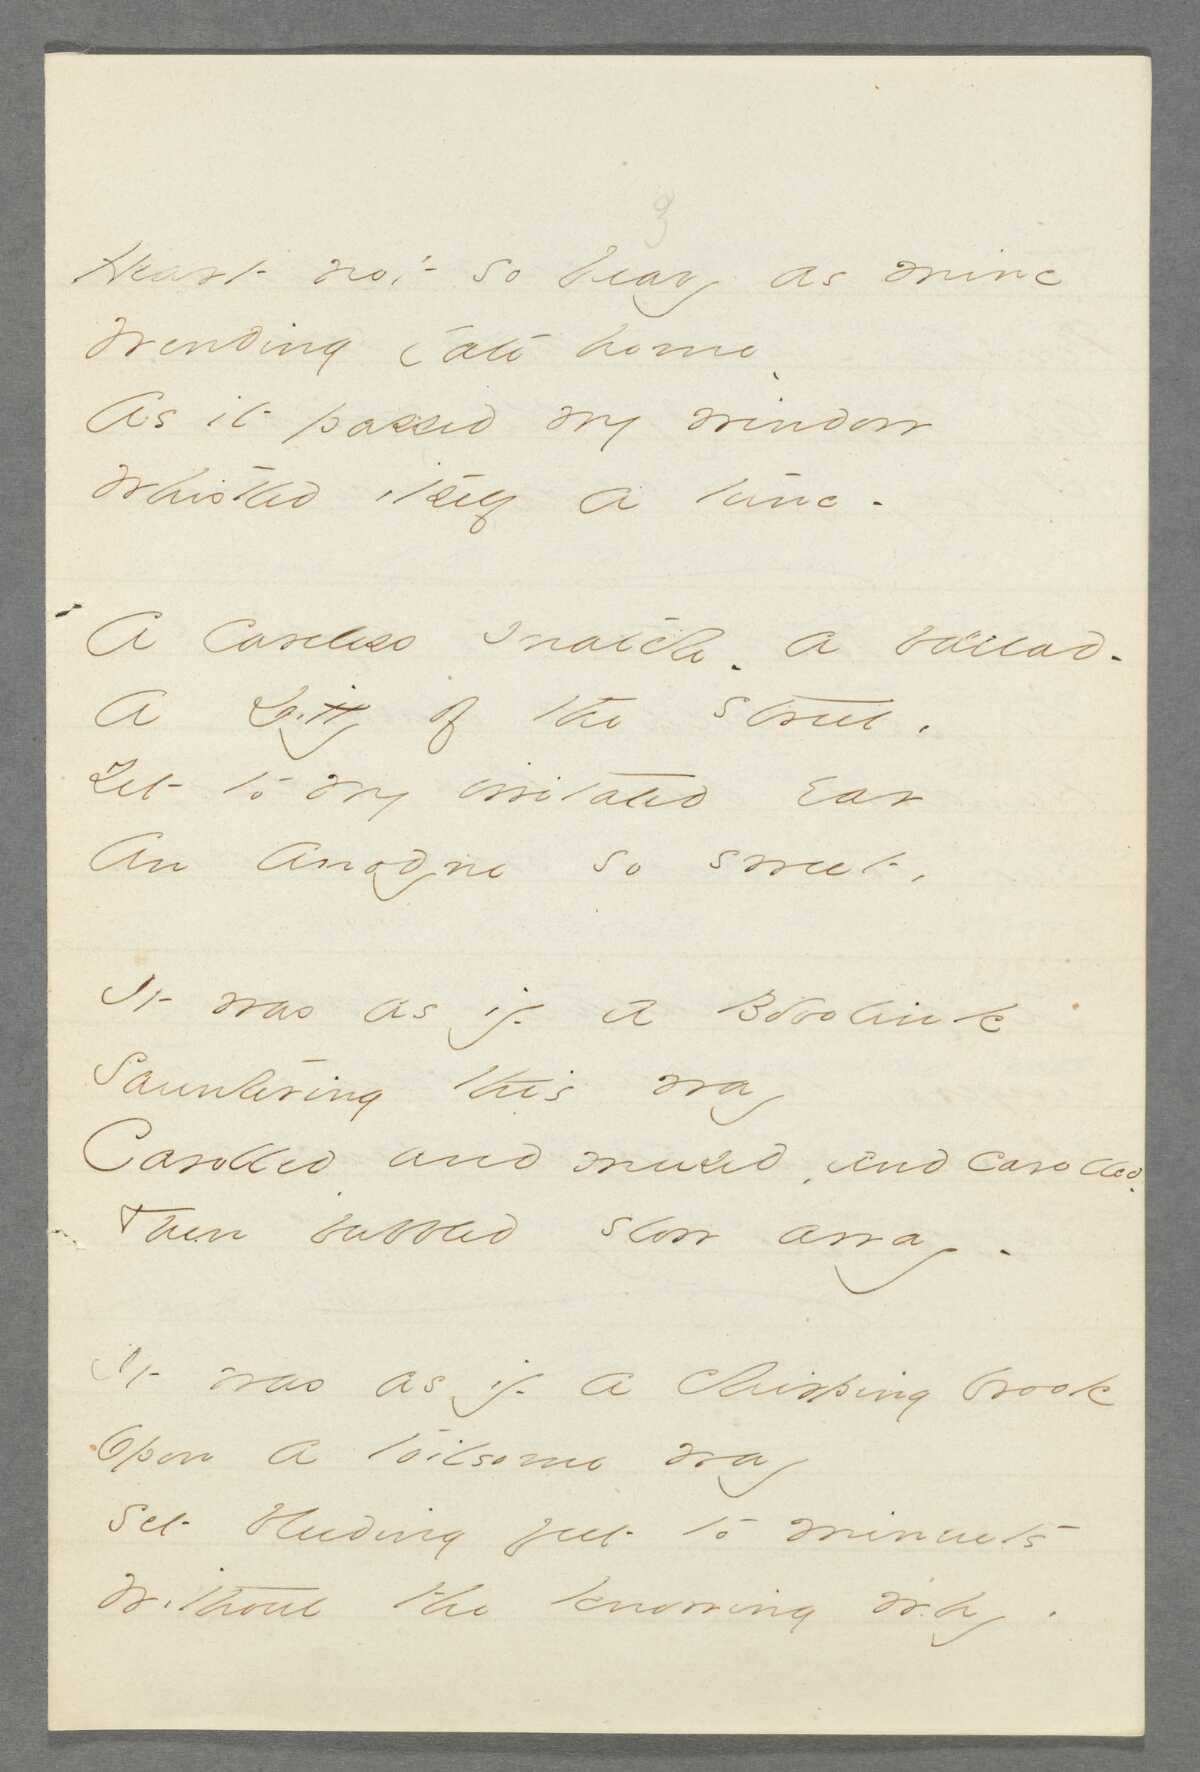 3
Heart not so heavy as mine
Wending late home
As it passed my window
Whistled itself a tune -
A careless snatch - a ballad -
A Ditty of the street,
Yet to my irritated Ear
An anodyne so sweet,
It was as if a Bobolink
Sauntering this way
Carolled and mused, and carolled,
Then bubbled slow away -
It was as if a chirping brook
Upon a toilsome way
Set bleeding feet to minuets
Without the knowing why.